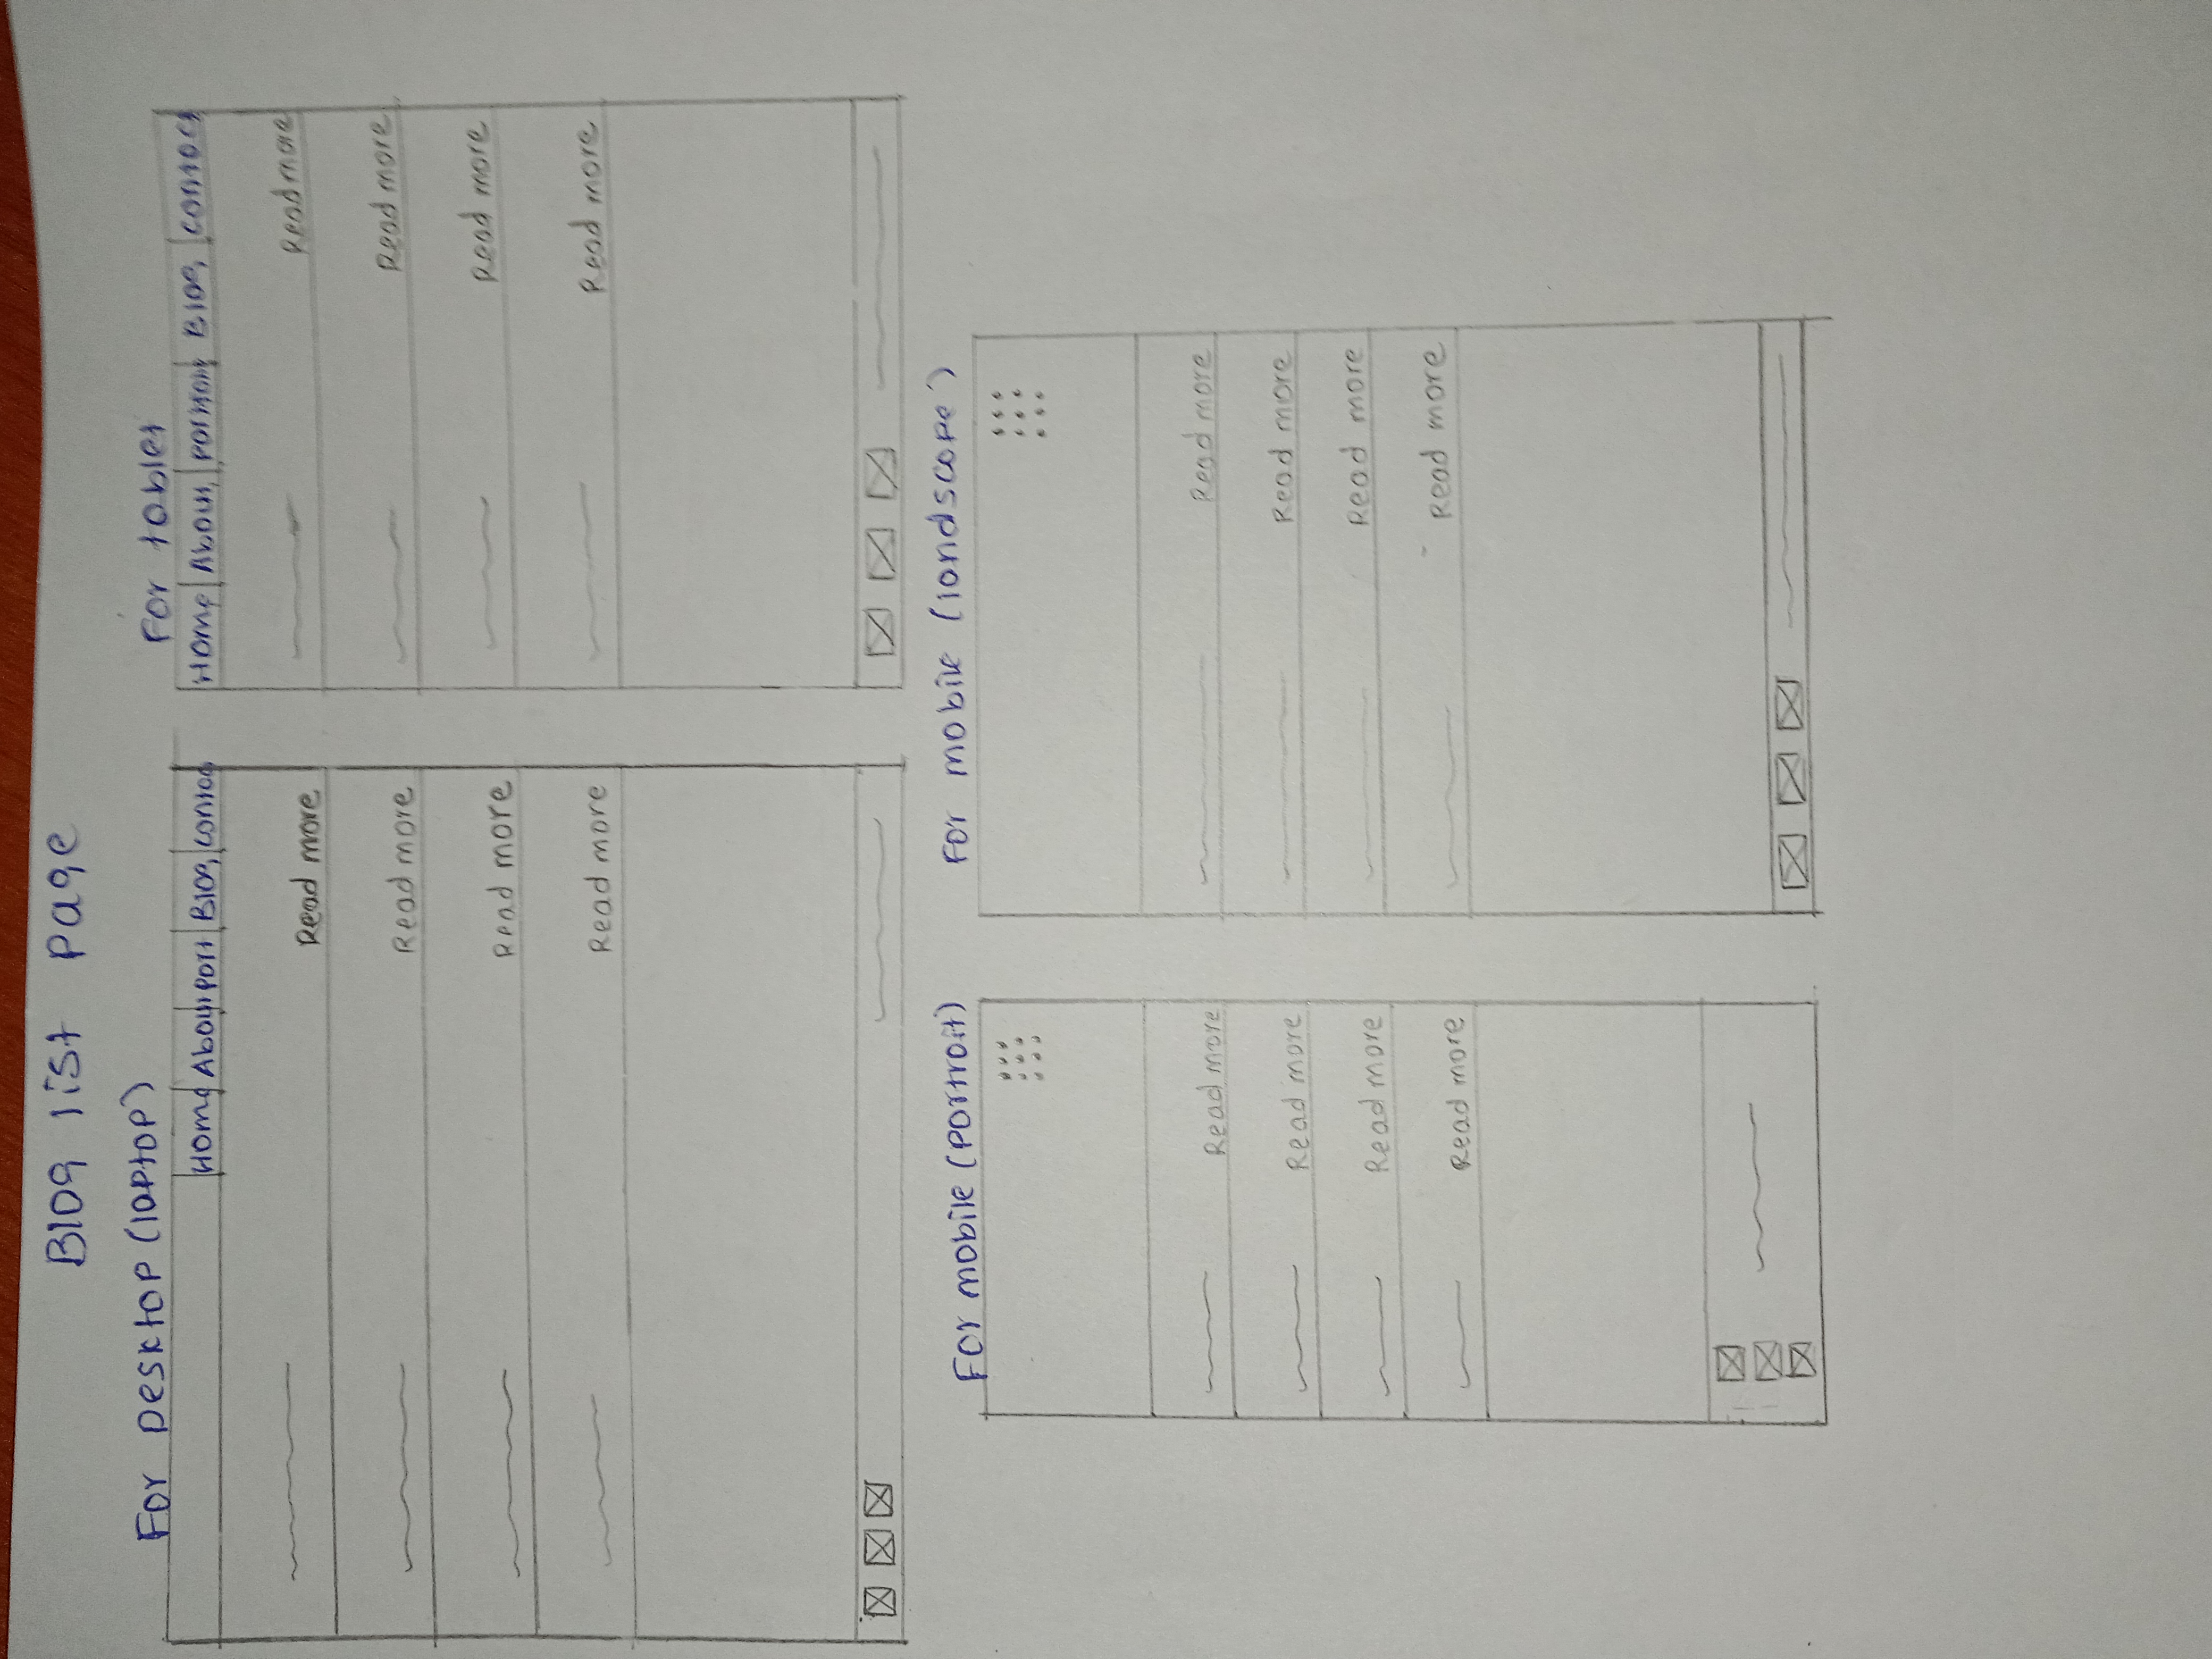 Blog list page
For Desktop (laptop)
Home About Port Blog Contac
Read more
Read more
Read more
Read more
For tablet
Home About Blog Contact
Read more
Read more
Read more
Read more
For mobile (portrait)
Read more
Read more
Read more
Read more
For mobile (landscape)
Read more
Read more
Read more
Read more